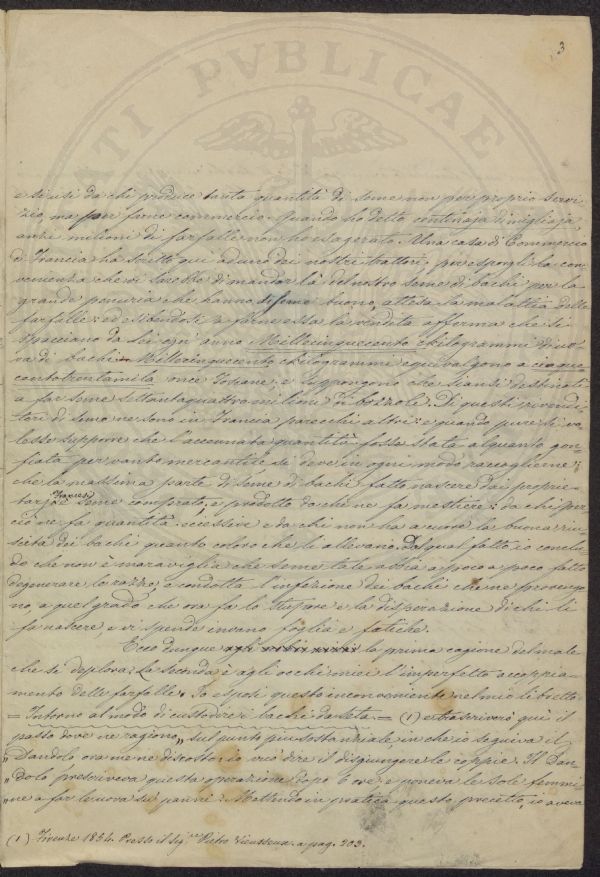 3
e si usi da chi produce tanta quantità di seme non per proprio servi-
zio, ma per farne commercio. Quando ho detto centinaja di migliaja,
anzi milioni di farfalle non ho esagerato. Una casa di Commercio
di Francia ha scritto qui ad uno dei nostri trattori, per esporgli la con-
venienza che vi sarebbe di mandar là del nostro seme di bachi per la
grande penuria che hanno di seme buono, attesa la malattia delle
farfalle: ed esibendosi a farne essa la vendita afferma che si
spacciano da lei ogni anno Millecinquecento chilogrammi di uo-
va di bachi. Millecinquecento chilogrammi equivalgono a cinque-
centotrentamila once Toscane, e suppongono che siansi destinati
a far seme settantaquattro milioni di bozzole. Di questi rivendi-
tori di seme ne sono in Francia parecchi altri: e quando pure si vo-
lesse supporre che l'accennata quantità fosse stata alquanto gon-
fiata per vanto mercantile si deve in ogni modo raccoglierne
che la massima parte di seme di bachi fatto nascere dai proprie-
tarj Francesi è seme comprato, e prodotto da chi ne fa mestiere: da chi per-
ciò ne fa quantità eccessive e da chi non ha a cuore la buona riu-
scita dei bachi quanto coloro che li allevano. Dal qual fatto io conclu-
do che non è maraviglia che seme tale abbia a poco a poco fatto
degenerare la razza, e condotta l'infezione dei bachi che ne provengo-
no a quel grado che ora fa lo stupore e la disperazione di chi li
fa nascere e vi spende invano foglia e fatiche.
Ecco dunque la prima cagione del male
che si deplora: La seconda è agli occhi miei l'imperfetto accoppia-
mento delle farfalle. Io esposi questo inconveniente nel mio libretto
= Intorno al modo di custodire i bachi da seta = (1) e trascriverò qui il
passo dove ne ragiono „ sul punto più sostanziale, in che io seguiva il
„ Dandolo ora me ne discosto: io vuò dire il disgiungere le coppie. Il Dan-
„ dolo prescriveva questa operazione dopo 6 ore e poneva le sole femmi-
„ ne a far le uova su' panni: Mettendo in pratica questo precetto, io aveva
(1) Firenze 1854. Presso il Sig.re Pietro Vieusseux. a pag. 203.